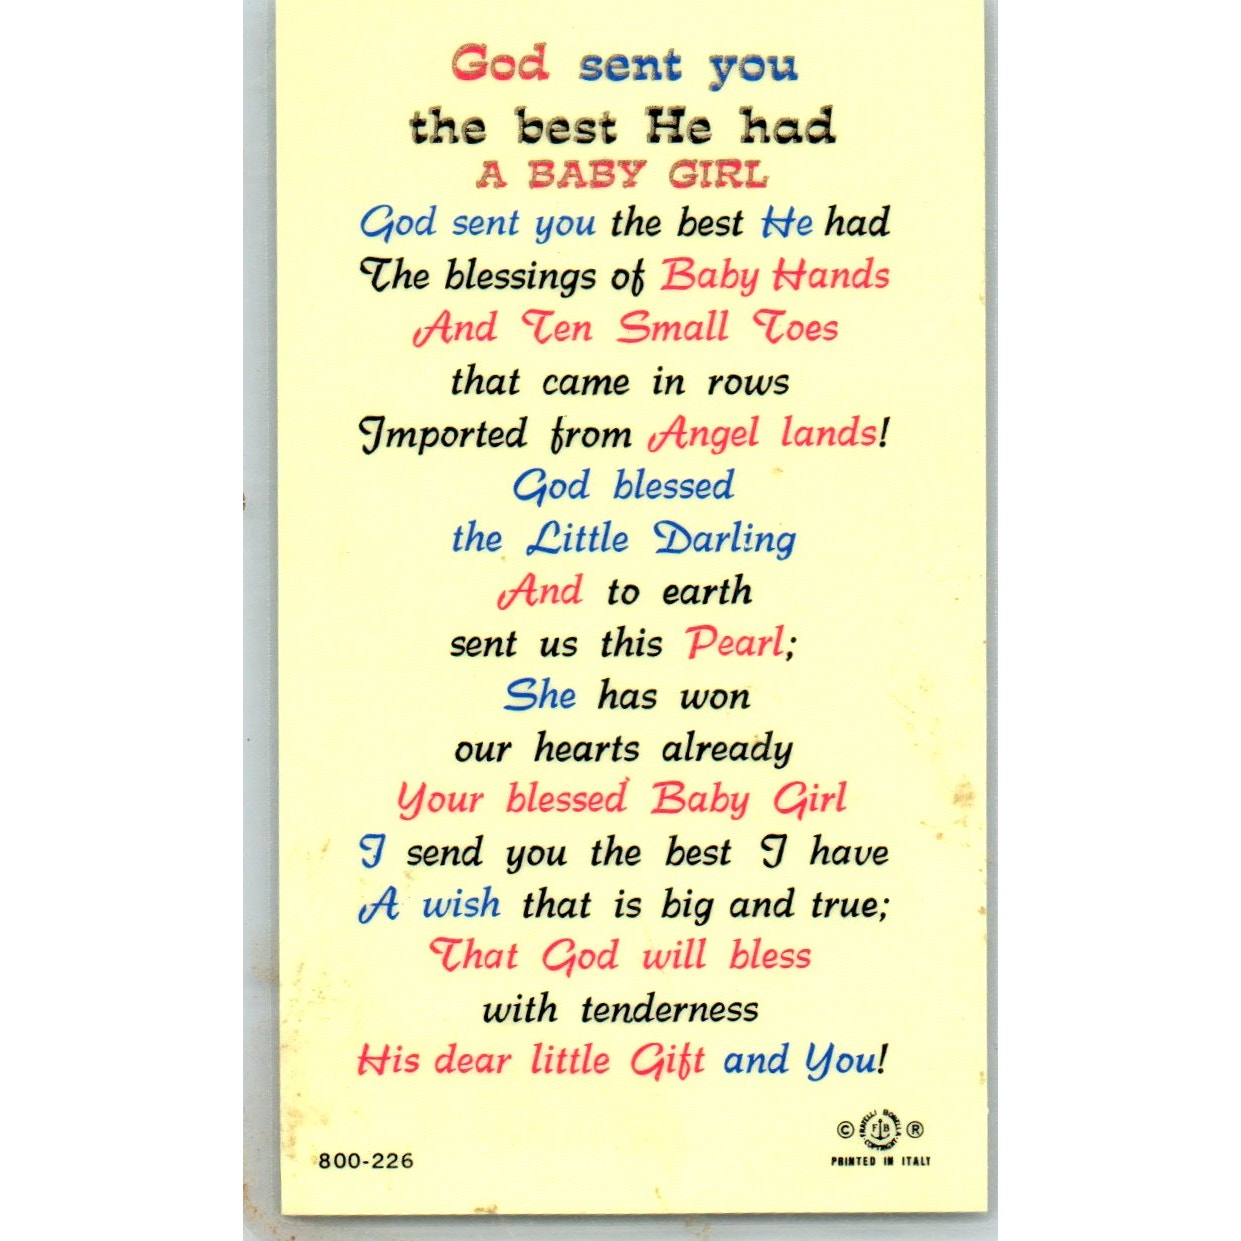 God sent you
the best He had
A BABY GIRL
God sent you the best He had
The blessings of Baby Hands
And Ten Small Toes
that came in rows
Imported from Angel lands!
God blessed
the Little Darling
And to earth
sent us this Pearl;
She has won
our hearts already
Your blessed Baby Girl
I send you the best I have
A wish that is big and true;
That God will bless
with tenderness
His dear little Gift and You!
© FRATELLI BONELLA FB COPYRIGHT ®
800-226
PRINTED IN ITALY